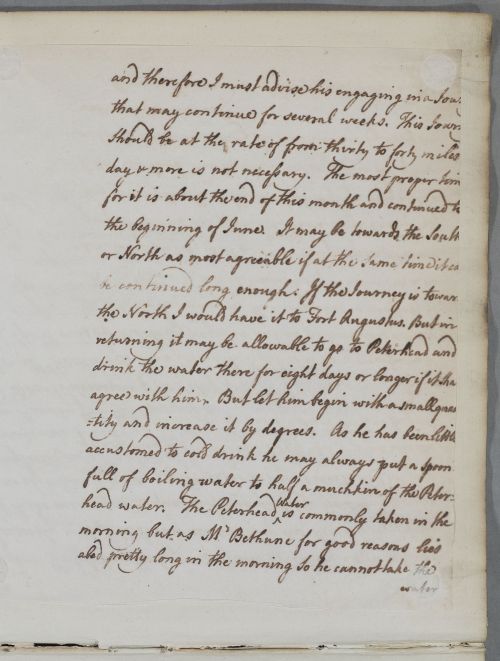 and therefore I must advise his engaging in a Jour
that may continue for several weeks. This Journ
should be at the rate of from thirty to forty miles
day & more is not necessary. The most proper tim
for it is about the end of this month and continued t
the beginning of June. It may be towards the South
or North as most agreeable if at the same time it ca
be continued long enough. If the Journey is towar
the North I would have it to Fort Augustus. But in
returning it may be allowable to go to Peterhead and
drink the water there for eight days or longer if it sha
agree with him. But let him begin with a small quan
-tity and increase it by degrees. As he has been little
accustomed to cold drink he may always put a spoon
full of boiling water to half a muchkin of the Peter-
head water. The Peterhead water is commonly taken in the
morning but as Mr Bethune for good reasons lies
abed pretty long in the morning so he cannot take the
water